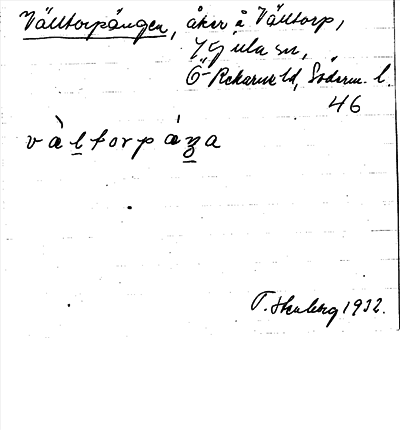 Välltorpängen, åker å Välltorp,
Gjula sn,
Ö-Rekarne hd, Söderm. l.
46
vàltorpáʒa
T. Stenberg 1932.